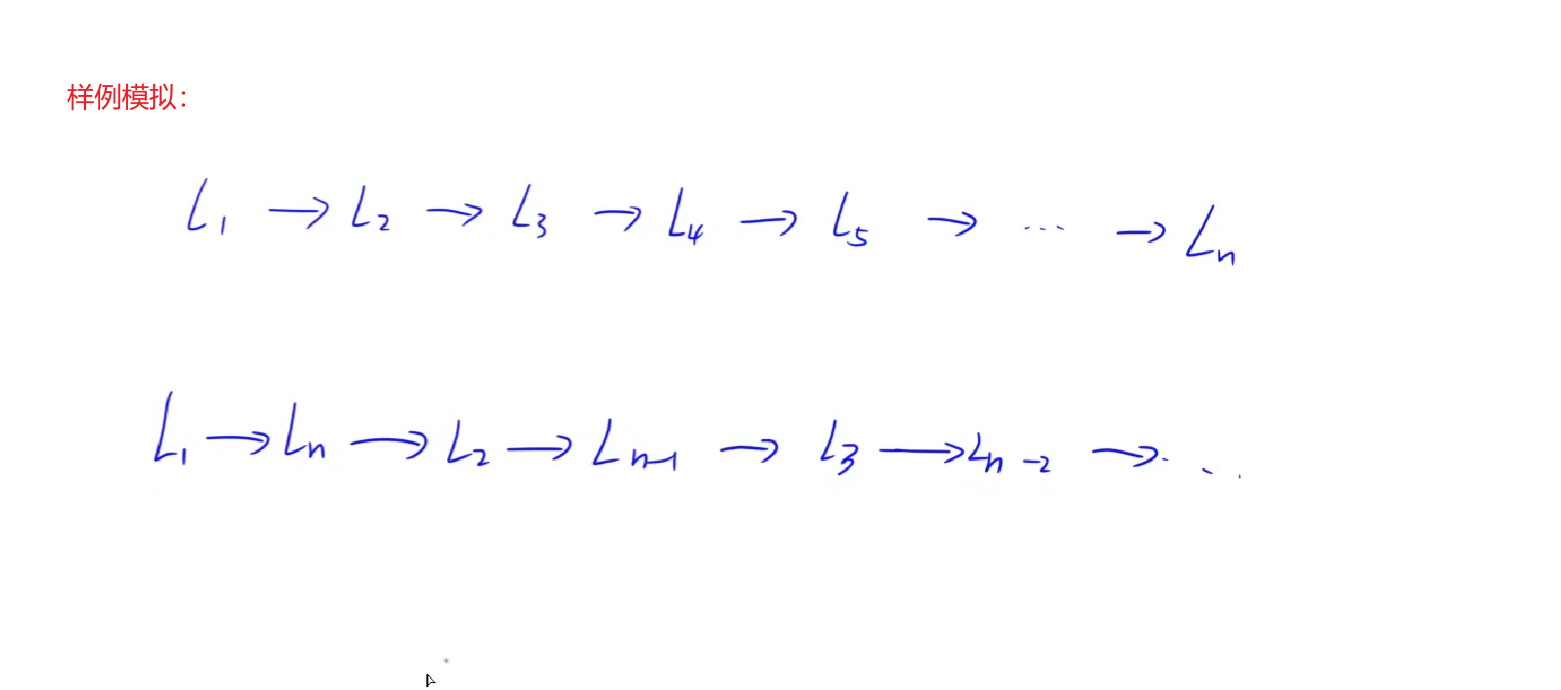 样例模拟：
L₁ → L₂ → L₃ → L₄ → L₅ → ... → Lₙ
L₁ → Lₙ → L₂ → Lₙ₋₁ → L₃ → Lₙ₋₂ → ...